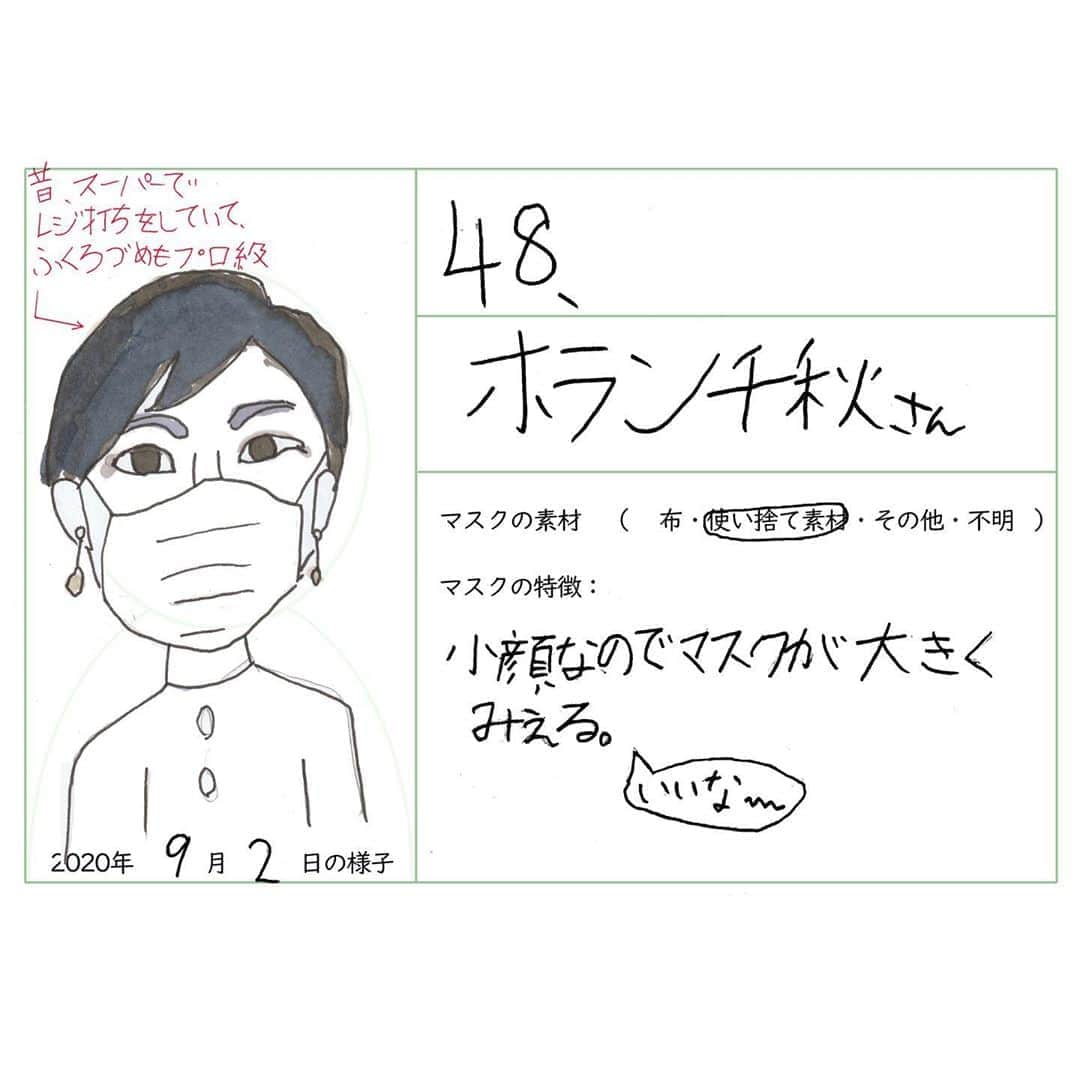 昔、スーパーで
レジ打ちをしていて、
ふくろづめもプロ級
48、
ホラン千秋さん
マスクの素材 （ 布・使い捨て素材・その他・不明 ）
マスクの特徴：
小顔なのでマスクが大きく
みえる。
いいな〜
2020年 9月 2日の様子